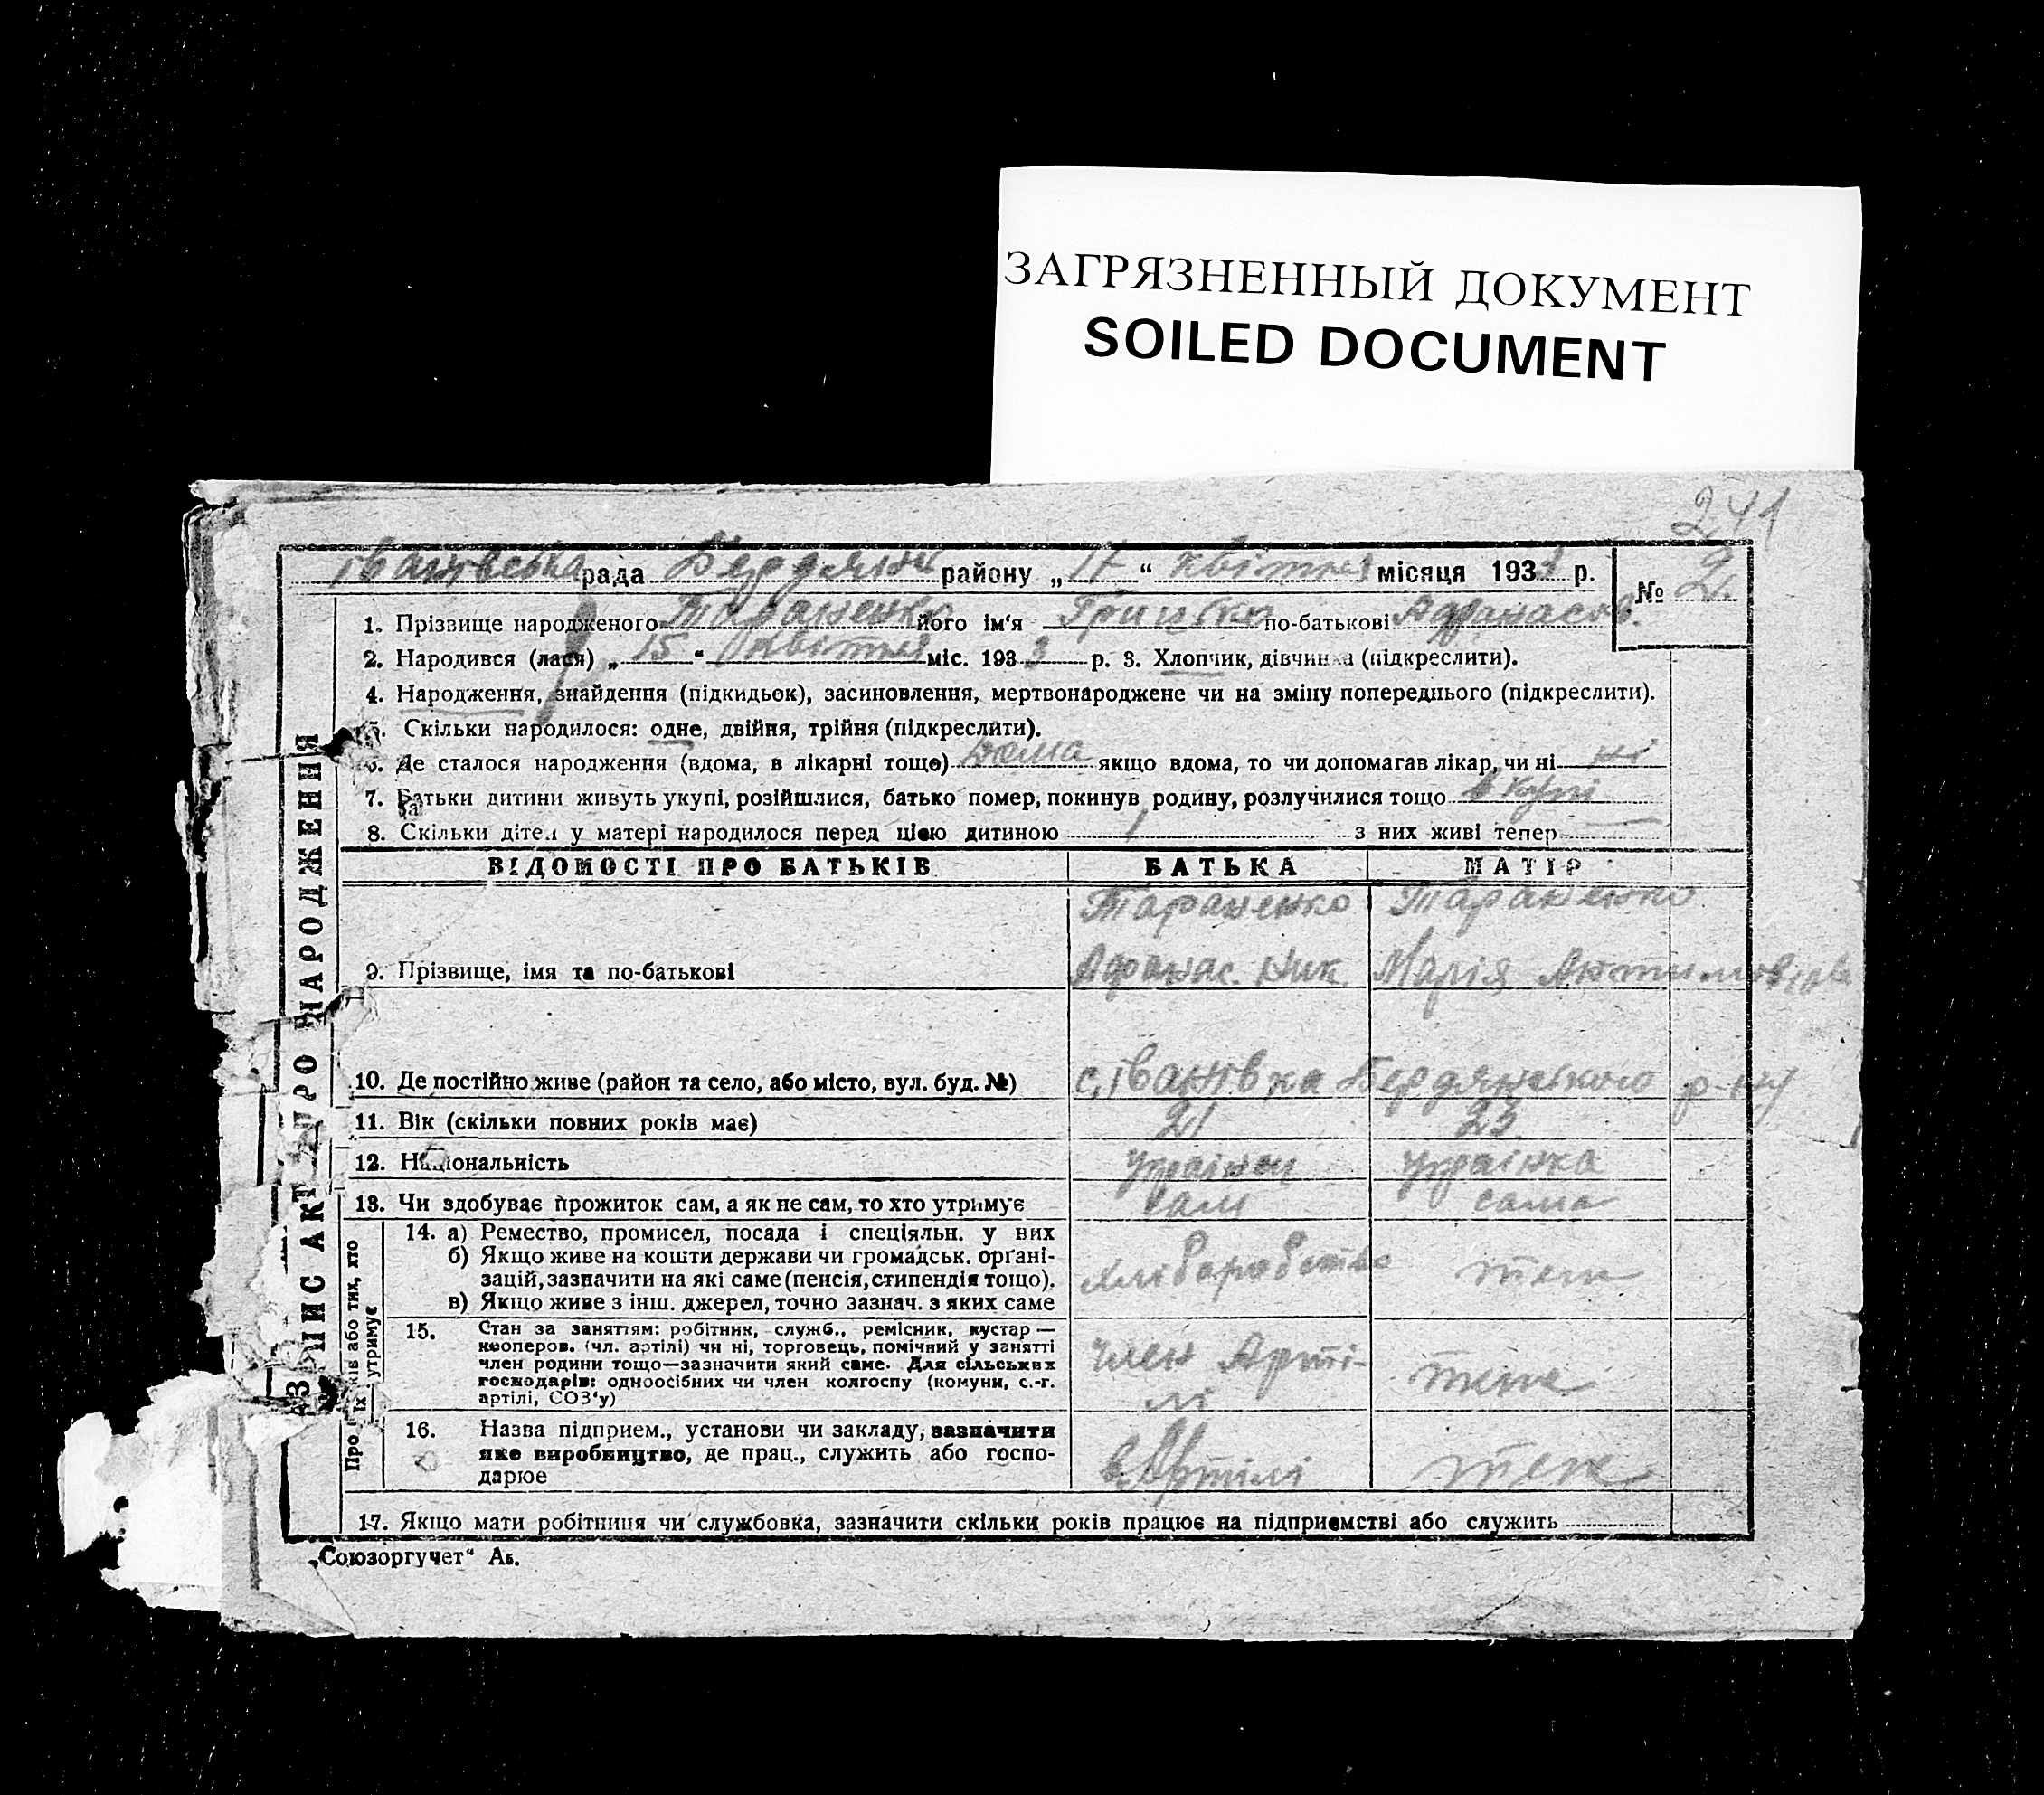 ЗАГРЯЗНЕННЫЙ ДОКУМЕНТ
SOILED DOCUMENT
241
Іванівська рада Бердянськ району „17“ квітня місяця 1933 р. № 2
1. Прізвище народженого Тараненко його ім'я по-батькові Афанасов.
2. Народився (лася) „15“ квітня міс. 1933 р. 3. Хлопчик, дівчинка (підкреслити).
4. Народження, знайдення (підкидьок), засиновлення, мертвонароджене чи на зміну попереднього (підкреслити).
5. Скільки народилося: одне, двійня, трійня (підкреслити).
6. Де сталося народження (вдома, в лікарні тощо) дома якщо вдома, то чи допомагав лікар, чи ні ні
7. Батьки дитини живуть укупі, розійшлися, батько помер, покинув родину, розлучилися тощо в купі
8. Скільки дітей у матері народилося перед цією дитиною 1 з них живі тепер
ВІДОМОСТІ ПРО БАТЬКІВ БАТЬКА МАТІР
Тараненко Тараненко
9. Прізвище, імя та по-батькові Афанас. Ник. Марія
10. Де постійно живе (район та село, або місто, вул. буд. №) с. Іванівка Бердянського р-ну
11. Вік (скільки повних років має) 21 23
12. Національність українец українка
13. Чи здобуває прожиток сам, а як не сам, то хто утримує сам сама
14. а) Ремество, промисел, посада і спеціяльн. у них
б) Якщо живе на кошти держави чи громадськ. орґані-
зацій, зазначити на які саме (пенсія, стипендія тощо).
в) Якщо живе з інш. джерел, точно зазнач. з яких саме
хліборобство теж
15. Стан за заняттям: робітник, служб., ремісник, кустар —
кооперов. (чл. артілі) чи ні, торговець, помічний у занятті
член родини тощо—зазначити який саме. Для сільських
господарів: одноосібних чи член колгоспу (комуни, с.-г.
артілі, СОЗ'у)
член Арті-
лі
теж
16. Назва підприєм., установи чи закладу, зазначити
яке виробництво, де прац., служить або госпо-
дарює
в Артілі теж
17. Якщо мати робітниця чи службовка, зазначити скільки років працює на підприємстві або служить
„Союзоргучет“ Аб.
ЗАПИС АКТ ПРО НАРОДЖЕННЯ
Про їх або тих, хто
утримує